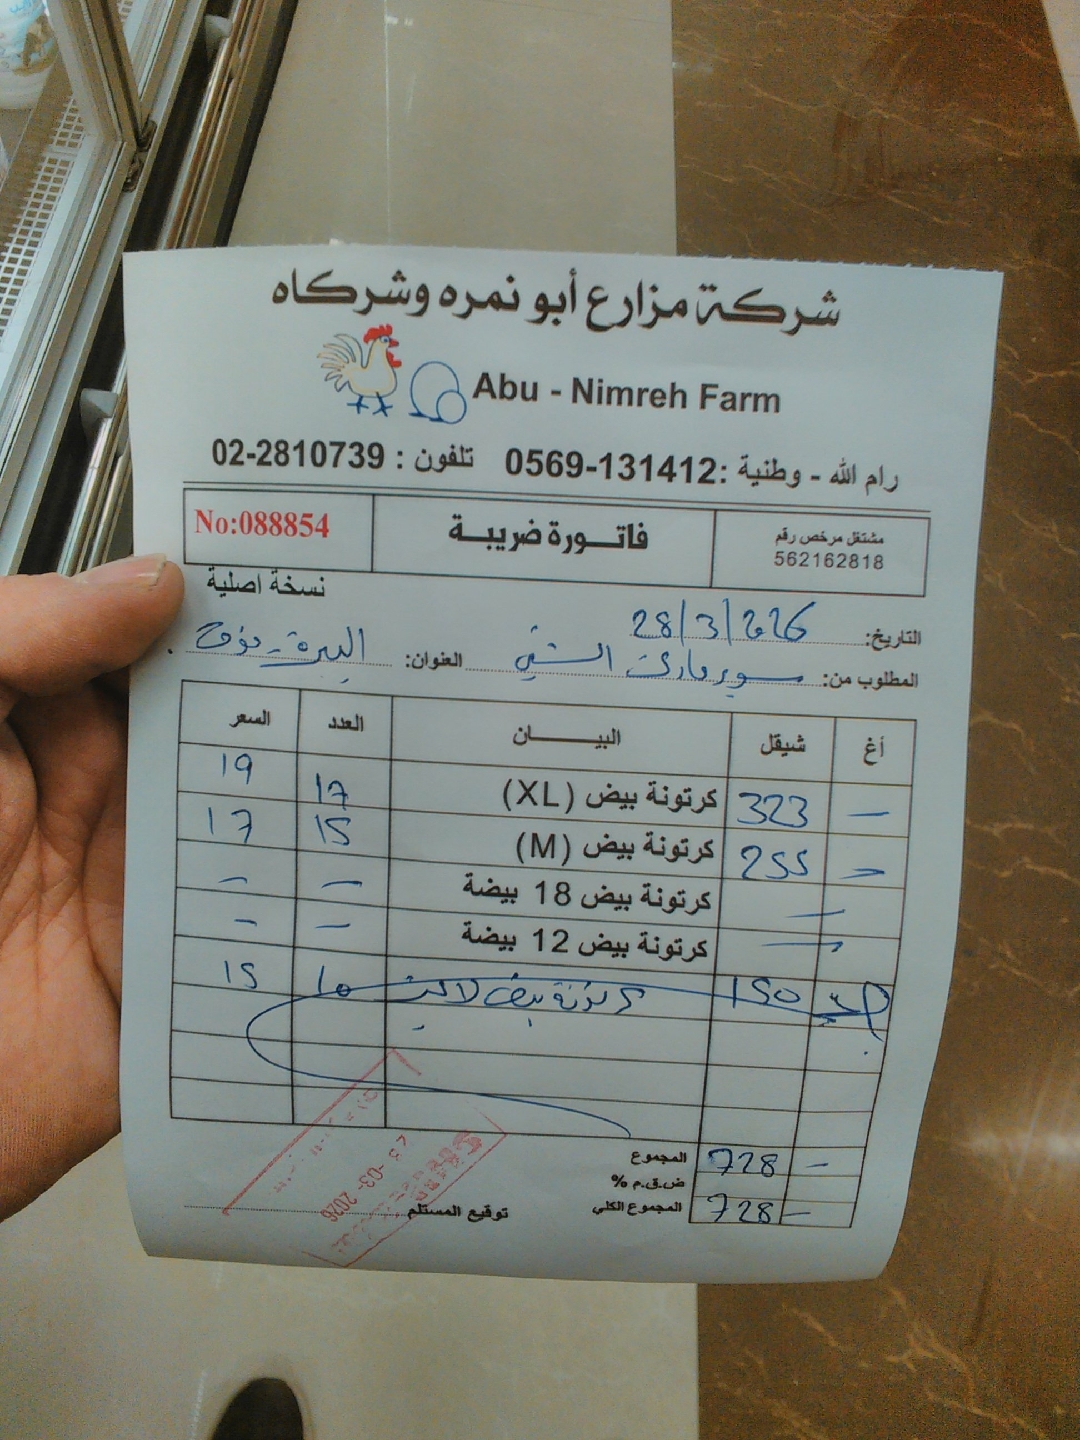 شركة مزارع أبو نمره وشركاه
Abu - Nimreh Farm
رام الله - وطنية :0569-131412 تلفون : 02-2810739
مشتغل مرخص رقم 562162818
فاتورة ضريبة
No:088854
نسخة اصلية
التاريخ: 28/3/2026
المطلوب من: سوبر ماركت العنوان: البيرة -
أغ شيقل البيـــــان العدد السعر
— 323 كرتونة بيض (XL) 17 19
— 255 كرتونة بيض (M) 15 17
— كرتونة بيض 18 بيضة — —
— كرتونة بيض 12 بيضة — —
150 كرتونة بيض 10 15
المجموع 728 —
ض.ق.م %
المجموع الكلي 728 —
توقيع المستلم
-03-2026